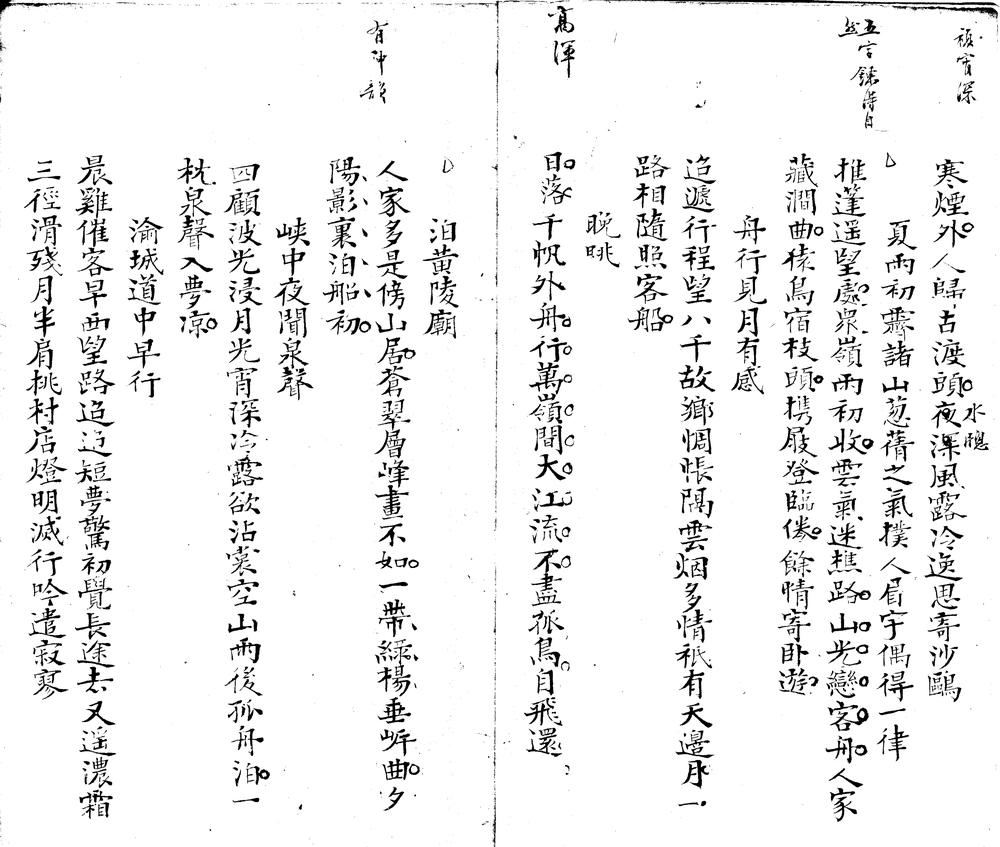 寒煙外人歸古渡頭夜深風露冷逸思寄沙鷗
水聰
夏雨初霽諸山蔥蒨之氣撲人眉宇偶得一律
推蓬遥望處眾嶺雨初收雲氣迷樵路山光戀客舟人家
藏澗曲猿鳥宿枝頭攜屐登臨倦餘情寄卧遊
舟行見月有感
迢遞行程望八千故鄉惆悵隔雲烟多情祇有天邊月一
路相隨照客船
晚眺
日落千帆外舟行萬嶺間大江流不盡孤鳥自飛還
高渾
泊黃陵廟
人家多是傍山居蒼翠層峰畫不如一帶綠楊垂岸曲夕
陽影裏泊船初
有神韻
峽中夜聞泉聲
四顧波光浸月光宵深冷露欲沾裳空山雨後孤舟泊一
枕泉聲入夢涼
渝城道中早行
晨雞催客早西望路迢迢短夢驚初覺長途去又遥濃霜
三徑滑殘月半肩挑村店燈明滅行吟遣寂寥